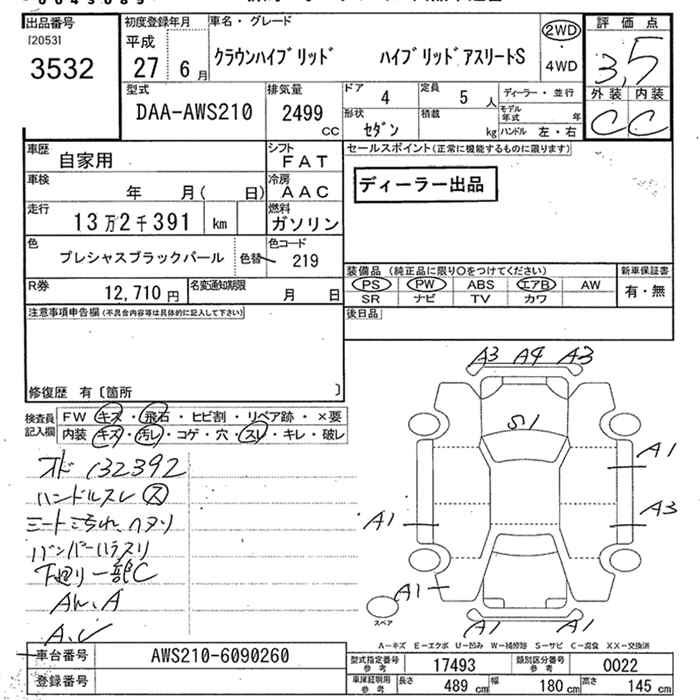 出品番号
[2053]
3532
初度登録年月
平成
27 6月
車名・グレード
クラウンハイブリッド ハイブリッドアスリートS
2WD
・
4WD
評価点
3,5
外装 内装
C C
型式
DAA-AWS210
排気量
2499
CC
ドア
4
定員
5 人
形状
セダン
積載
kg
ディーラー・並行
モデル
年式 年
ハンドル 左・右
車歴
自家用
シフト
FAT
車検
年 月( 日)
冷房
AAC
走行
13万2千391 km
燃料
ガソリン
色
プレシャスブラックパール
色替
色コード
219
R券
12,710 円
名変通知期限
月 日
セールスポイント(正常に機能するものに限ります)
ディーラー出品
装備品(純正品に限り○をつけてください)
PS PW ABS エアB AW
SR ナビ TV カワ
新車保証書
有・無
後日品
注意事項申告欄(不具合内容等は具体的に記入して下さい)
修復歴 有〔箇所 〕
検査員
記入欄
FW キズ・飛石・ヒビ割・リペア跡・×要
内装 キズ・汚レ・コゲ・穴・スレ・キレ・破レ
オド 132392
ハンドルスレ ㋜
シート汚れ、ヘタリ
バンパーウラスリ
下廻り一部C
A3 A4 A3
S1
A1
A3
A1
A1
A1 A1
スペア
A-キズ E-エクボ U-凹み W-補修跡 S-サビ C-腐食 XX-交換済
車台番号
AWS210-6090260
登録番号
型式指定番号
参考
17493
類別区分番号
参考
0022
車庫証明用
参考
長さ 489 cm
幅 180 cm
高さ 145 cm